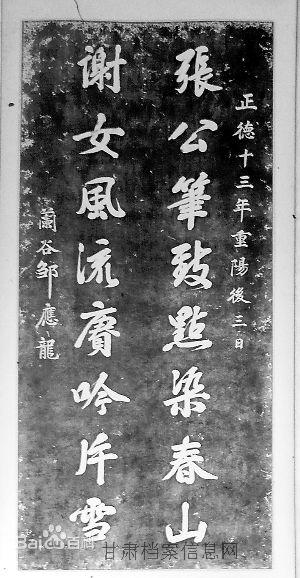 正德十三年重陽後三日
張公筆致點染春山
謝女風流賡吟片雪
蘭谷鄒應龍
Baidu百科
甘肃档案信息网